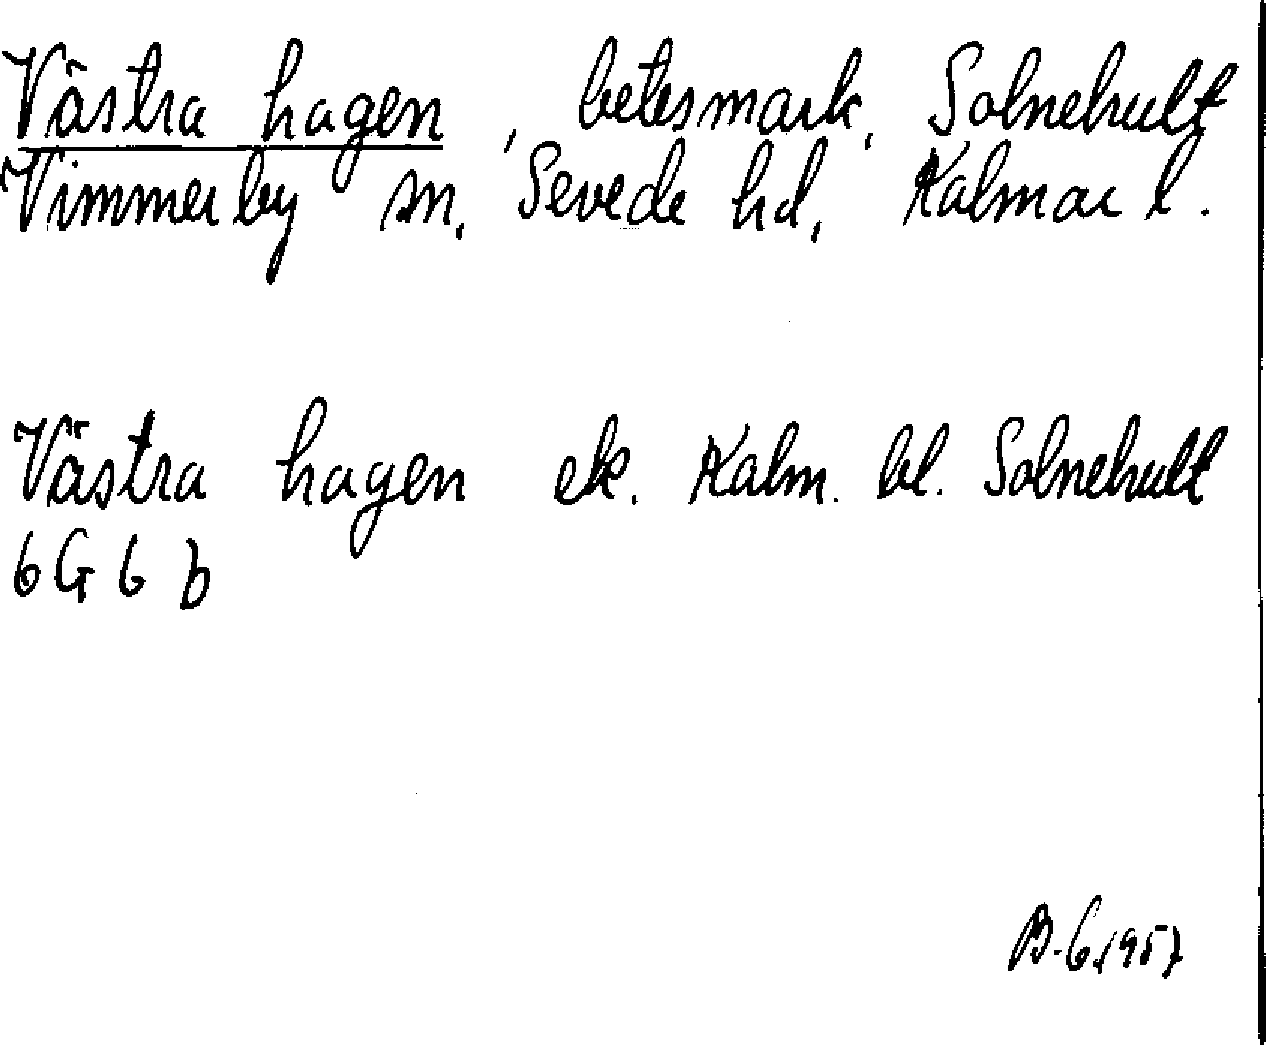 Västra hagen, betesmark, Solnehult
Vimmerby sn, Sevede hd, Kalmar l.
Västra hagen ek. Kalm. bl. Solnehult
6G 6 b
B.G. 1957